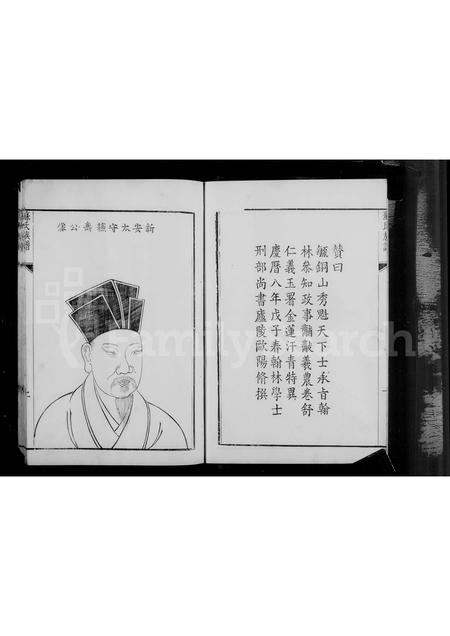 贊曰
毓銅山秀魁天下士承旨翰
林參知政事黼黻羲農卷舒
仁義玉署金蓮汗青特異
慶曆八年戊子春翰林學士
刑部尚書廬陵歐陽脩撰
新安太守公像
蘇氏族譜
FamilySearch